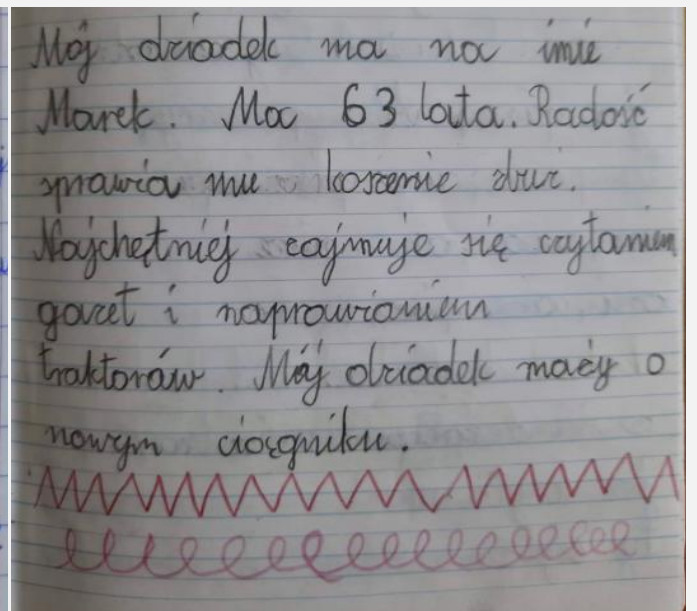 Mój dziadek ma na imię
Marek. Ma 63 lata. Radość
sprawia mu koszenie
Najchętniej zajmuje się czytaniem
gazet i naprawianiem
traktorów. Mój dziadek marzy o
nowym ciągniku.